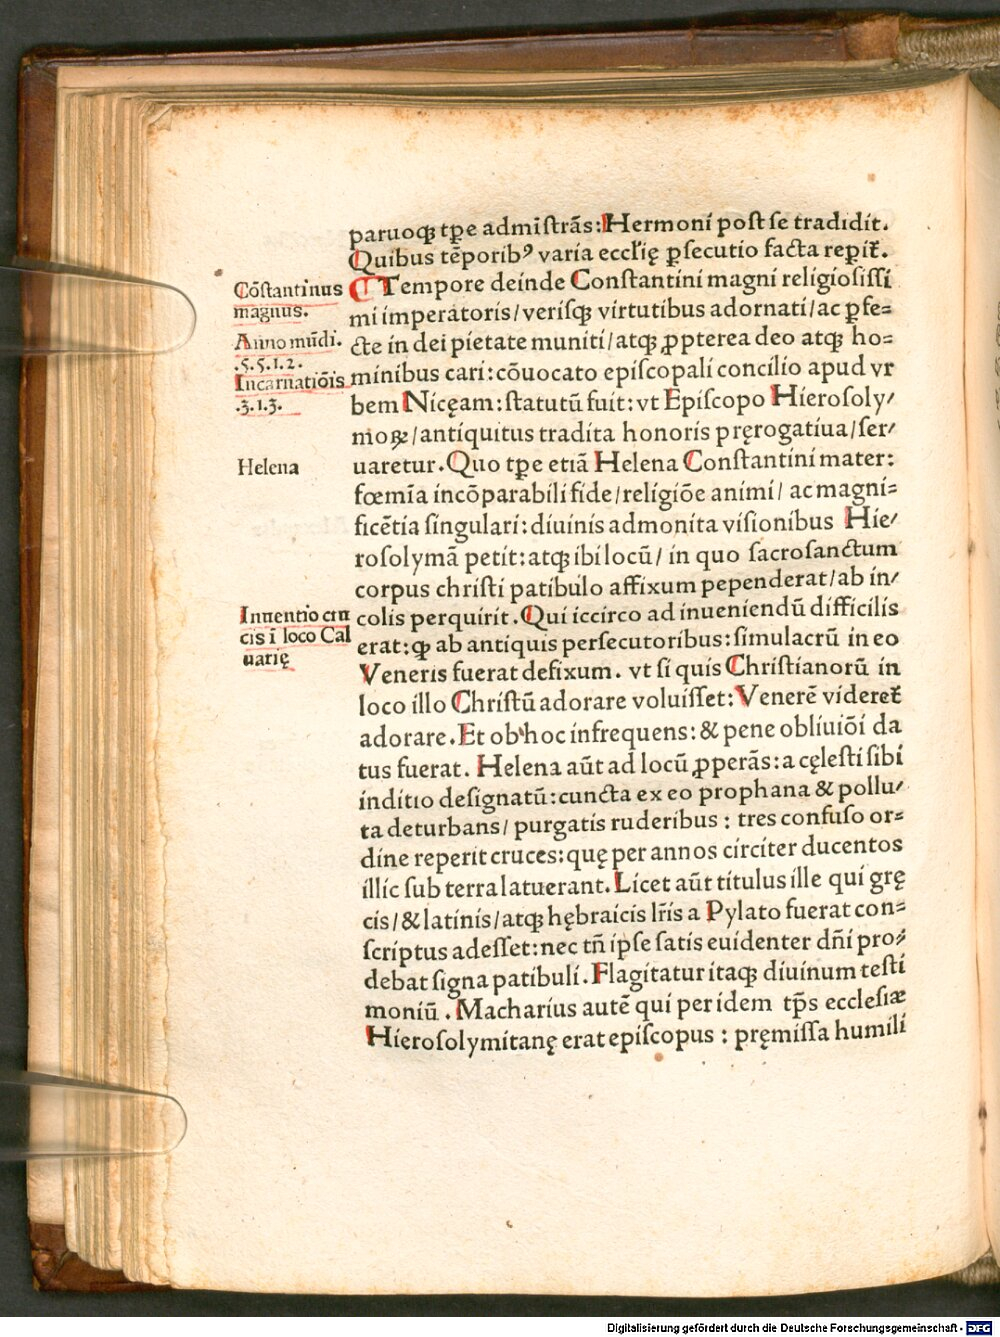 paruoqꝫ tꝑe admīſtrãs: Hermoni poſt ſe tradidit.
Quibus tẽporibꝰ varia eccłię ꝑſecutio facta reperit̃.
Cõſtantinus
magnus.
Anno mũdi.
.5.5.1.2.
Incarnatiõis
.3.1.3.
Helena
Inuentio cru
cis ĩ loco Cal
uarię
¶ Tempore deinde Conſtantini magni religioſiſſi
mi imperatoris/ veriſqꝫ virtutibus adornati/ ac ꝑfe⸗
cte in dei pietate muniti/ atqꝫ ꝓpterea deo atqꝫ ho⸗
minibus cari: cõuocato epiſcopali concilio apud vr
bem Nicęam: ſtatutũ fuit: vt Epiſcopo Hieroſoly/
moꝝ/ antiquitus tradita honoris pręrogatiua/ ſer/
uaretur. Quo tꝑe etiã Helena Conſtantini mater:
fœmĩa incõparabili fide/ religiõe animi/ ac magni⸗
ficẽtia ſingulari: diuinis admonita viſionibus Hie/
roſolymã petit: atqꝫ ibi locũ/ in quo ſacroſanctum
corpus chriſti patibulo affixum pependerat/ ab in/
colis perquirit. Qui iccirco ad inueniendũ difficilis
erat: ꝙ ab antiquis perſecutoribus: ſimulacrũ in eo
Veneris fuerat defixum. vt ſi quis Chriſtianorũ in
loco illo Chriſtũ adorare voluiſſet: Venerẽ videret̃
adorare. Et ob hoc infrequens: & pene obliuiõi da
tus fuerat. Helena aũt ad locũ ꝓperãs: a cęleſti ſibi
inditio deſignatũ: cuncta ex eo prophana & pollu/
ta deturbans/ purgatis ruderibus: tres confuſo or⸗
dine reperit cruces: quę per annos circiter ducentos
illic ſub terra latuerant. Licet aũt titulus ille qui grę
cis/ & latinis/ atqꝫ hębraicis lr̃is a Pylato fuerat con⸗
ſcriptus adeſſet: nec tñ ipſe ſatis euidenter dñi pro⸗
debat ſigna patibuli. Flagitatur itaqꝫ diuinum teſti
moniũ. Macharius autẽ qui per idem tp̃s eccleſiæ
Hieroſolymitanę erat epiſcopus: pręmiſſa humili
Digitalisierung gefördert durch die Deutsche Forschungsgemeinschaft - DFG